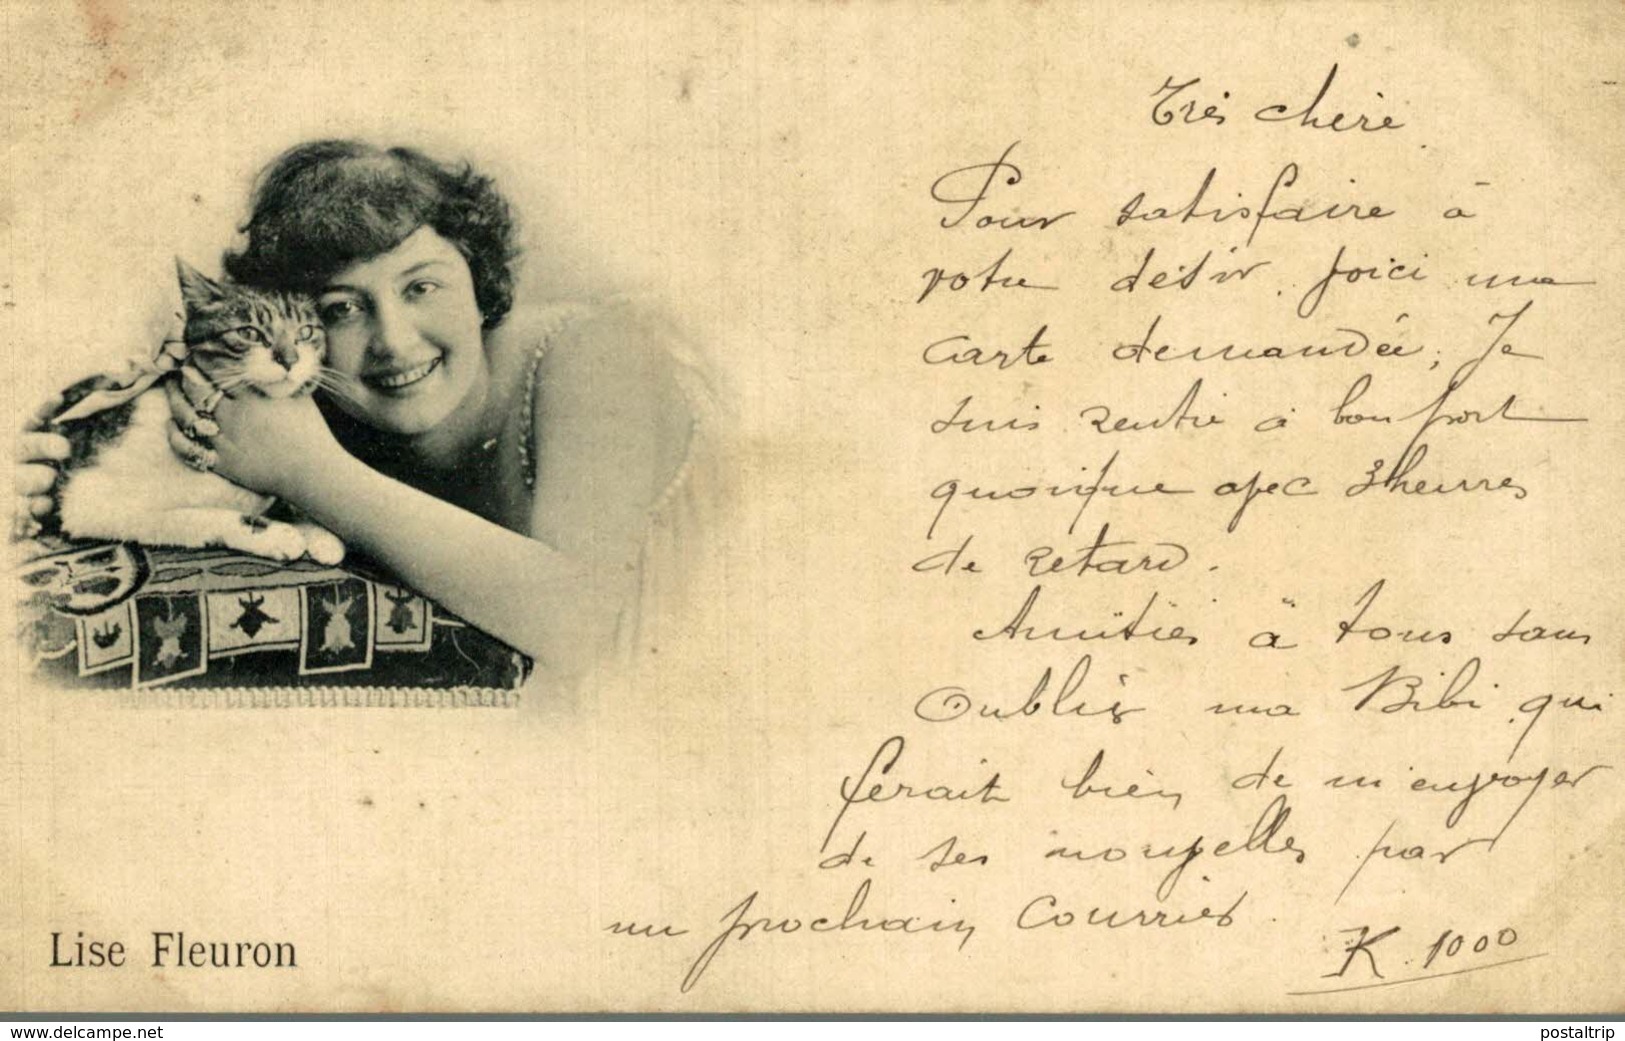 Très chère
Pour satisfaire à
votre désir, voici une
carte demandée; Je
suis rentré à bon port
quoique avec 3 heures
de retard.
Amitiés à tous sans
oublier ma Bibi qui
ferait bien de m'envoyer
de ses nouvelles par
un prochain courrier.
K. 1000
Lise Fleuron
www.delcampe.net
postaltrip